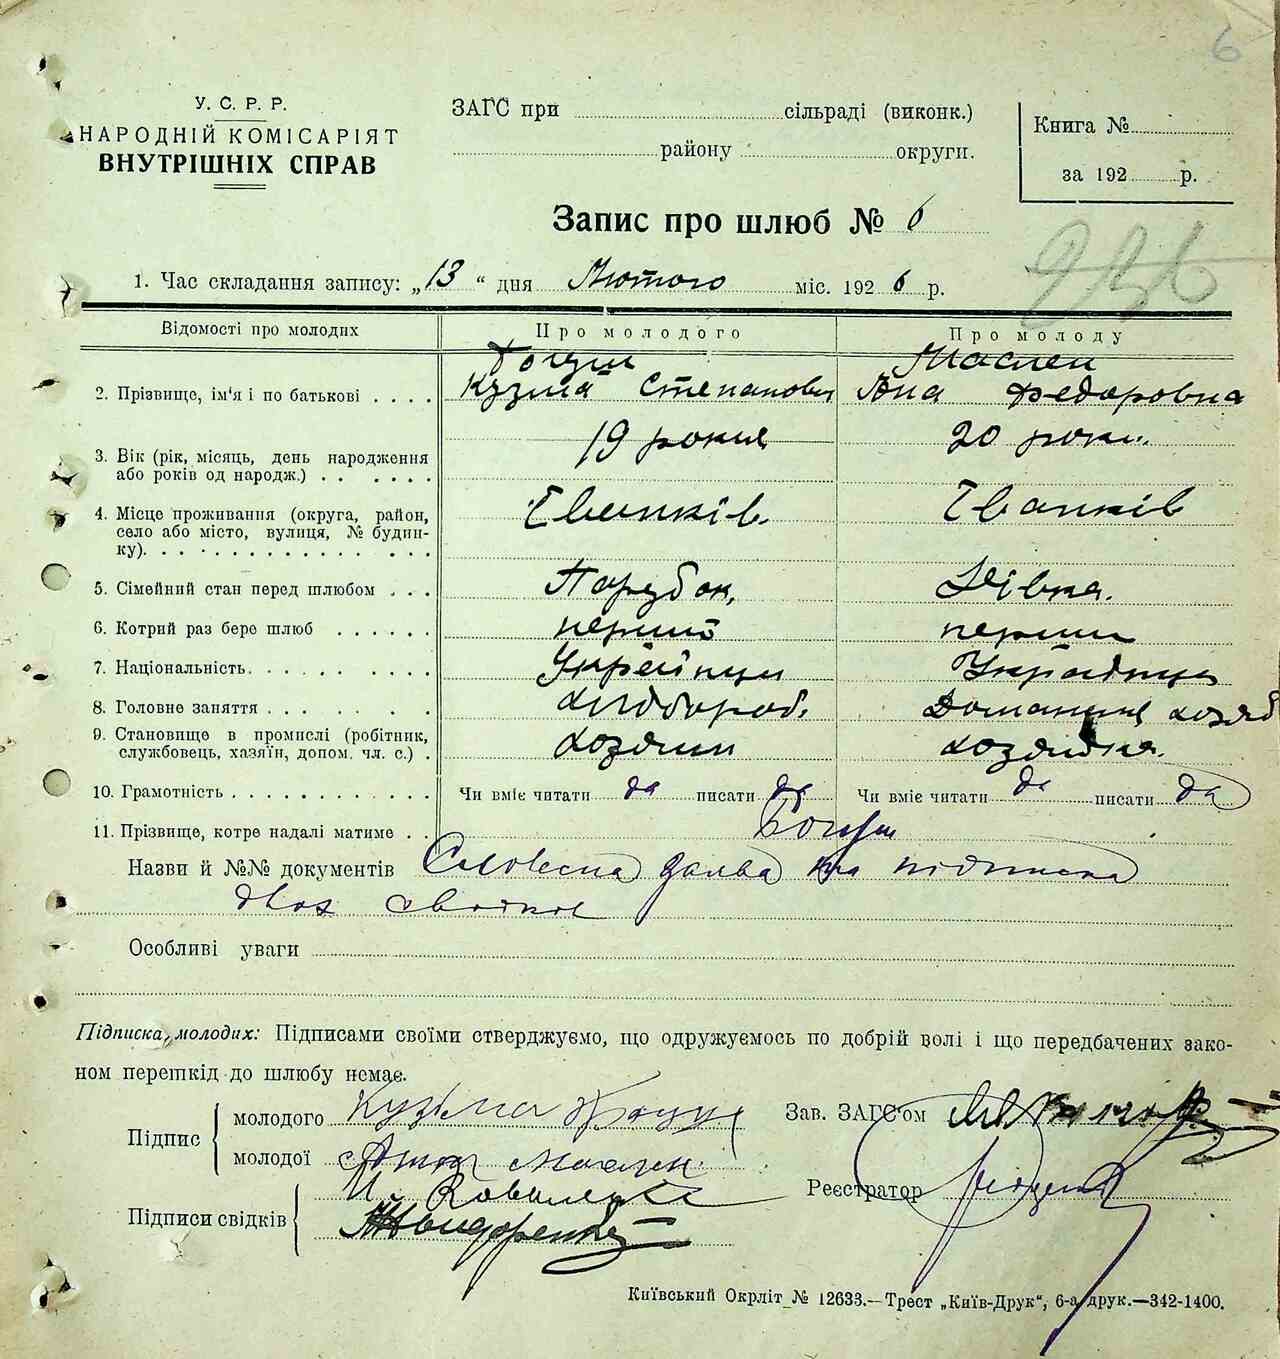 6
У. С. Р. Р.
НАРОДНІЙ КОМІСАРІЯТ
ВНУТРІШНІХ СПРАВ
ЗАГС при сільраді (виконк.)
району округи.
Книга №
за 192 р.
Запис про шлюб № 6
1. Час складання запису: „13“ дня Лютого міс. 1926 р.
Відомості про молодих Про молодого Про молоду
Маслен
2. Прізвище, ім'я і по батькові . . . . Кузма Степанович Ана Федоровна
19 рокив 20 роки.
3. Вік (рік, місяць, день народження
або років од народж.) . . . . . .
4. Місце проживання (округа, район, Іванків Іванків
село або місто, вулиця, № будин-
ку). . . . . . . . . . . . . . . .
5. Сімейний стан перед шлюбом . . . Парубок, Дівка.
6. Котрий раз бере шлюб . . . . . . перший перший
7. Національність. . . . . . . . . .
8. Головне заняття . . . . . . . . Хлібороб.
9. Становище в промислі (робітник,
службовець, хазяїн, допом. чл. с.) . хозяин хозяйка.
10. Грамотність . . . . . . . . . . . Чи вміє читати да писати да Чи вміє читати да писати да
11. Прізвище, котре надалі матиме . . Богуш
Назви й №№ документів Словесна заява та підписка
двох свідків
Особливі уваги
Підписка молодих: Підписами своїми стверджуємо, що одружуємось по добрій волі і що передбачених зако-
ном перешкід до шлюбу немає.
Підпис молодого Кузма
молодої Анна Маслен.
Підписи свідків
Зав. ЗАГС'ом
Реєстратор
Київський Окрліт № 12633.—Трест „Київ-Друк“, 6-а друк.—342-1400.